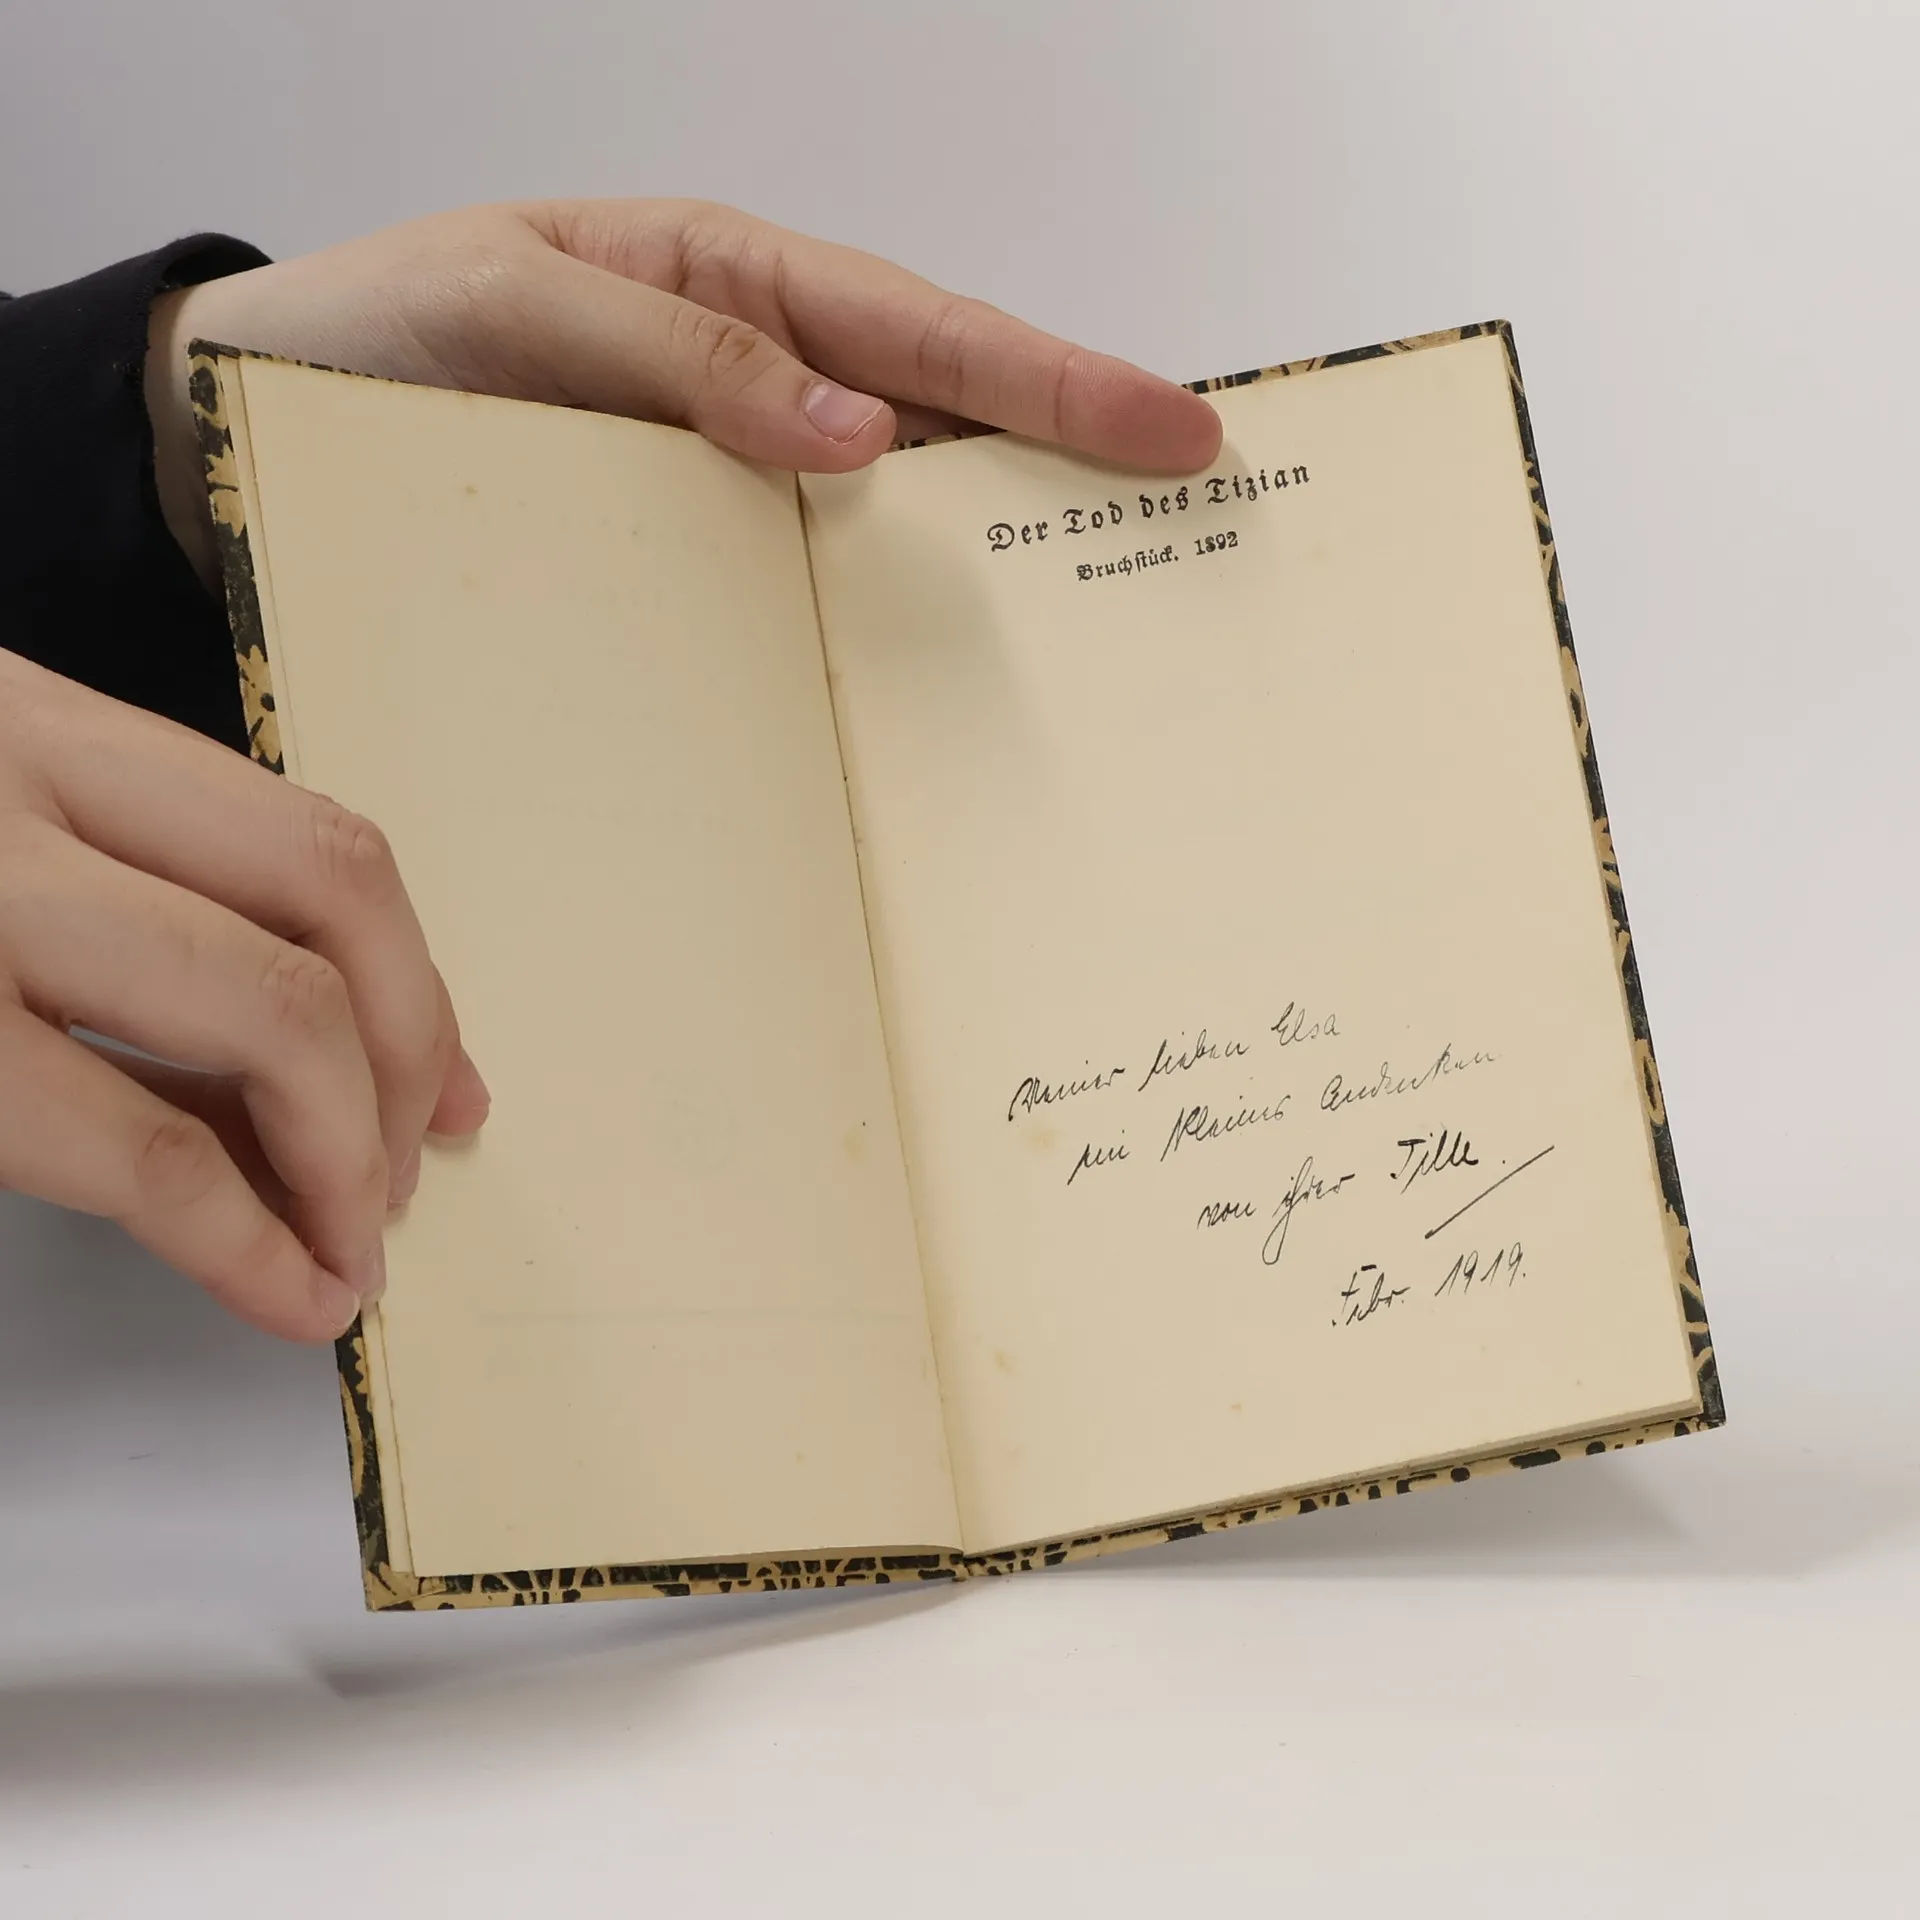 Der Tod des Tizian
Bruchstück. 1892
Meiner lieben Elsa
ein kleines Andenken
von ihrer Tille.
Febr. 1919.